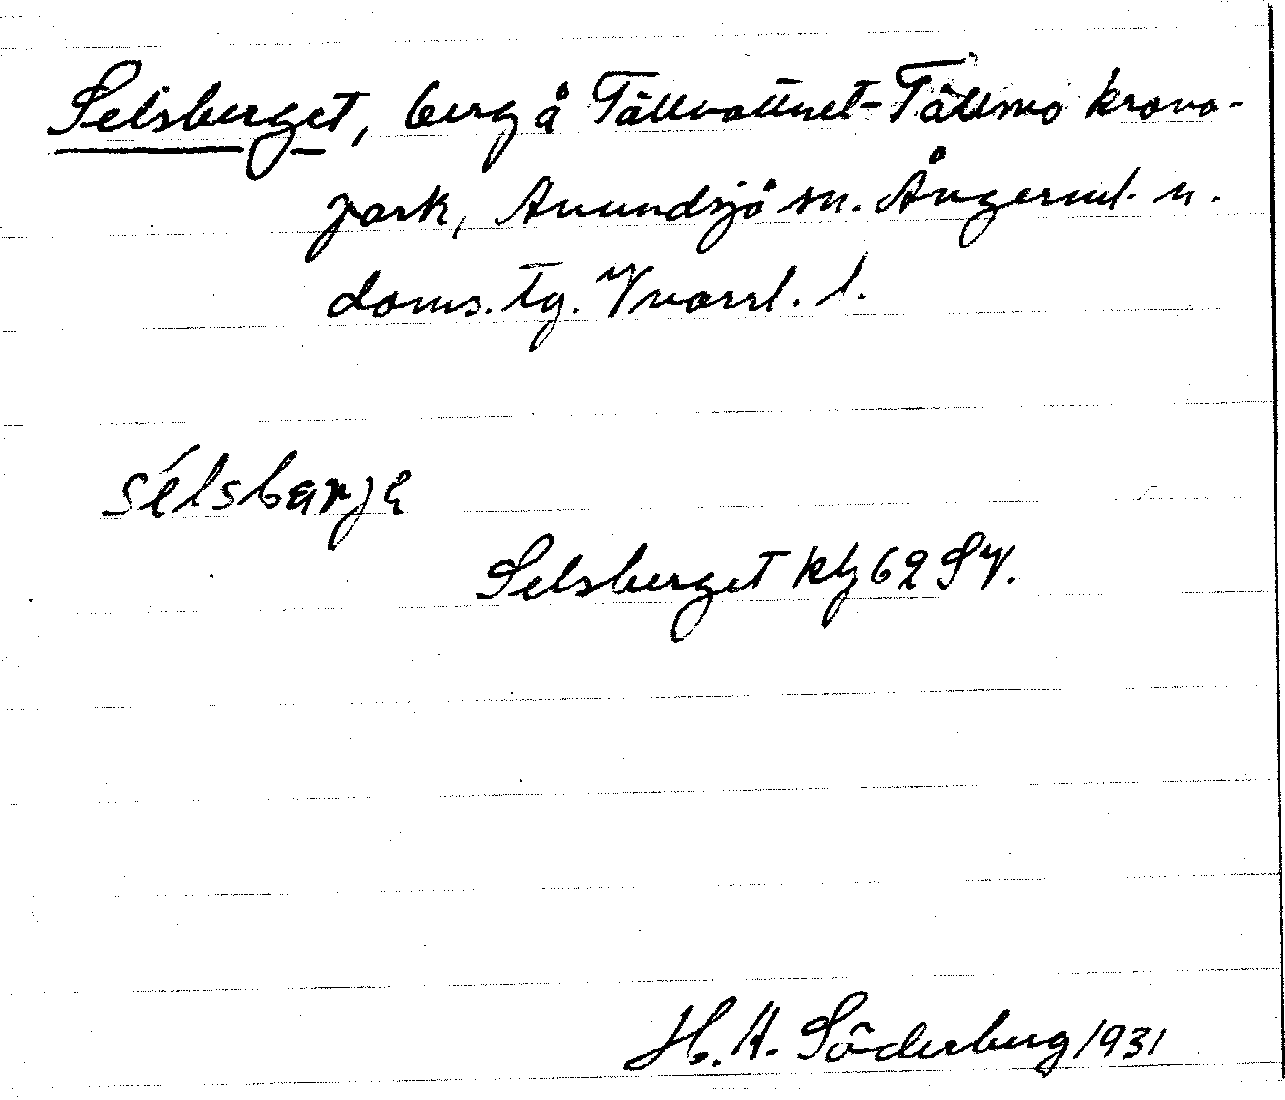 Selsberget, berg å Tällvattnet-Tällmo krono-
park, Anundsjö sn. Ångerml. n.
doms. tg. Vnorrl. l.
sélsbarjɐ
Selsberget kbl 62 SV.
H. A. Söderberg 1931